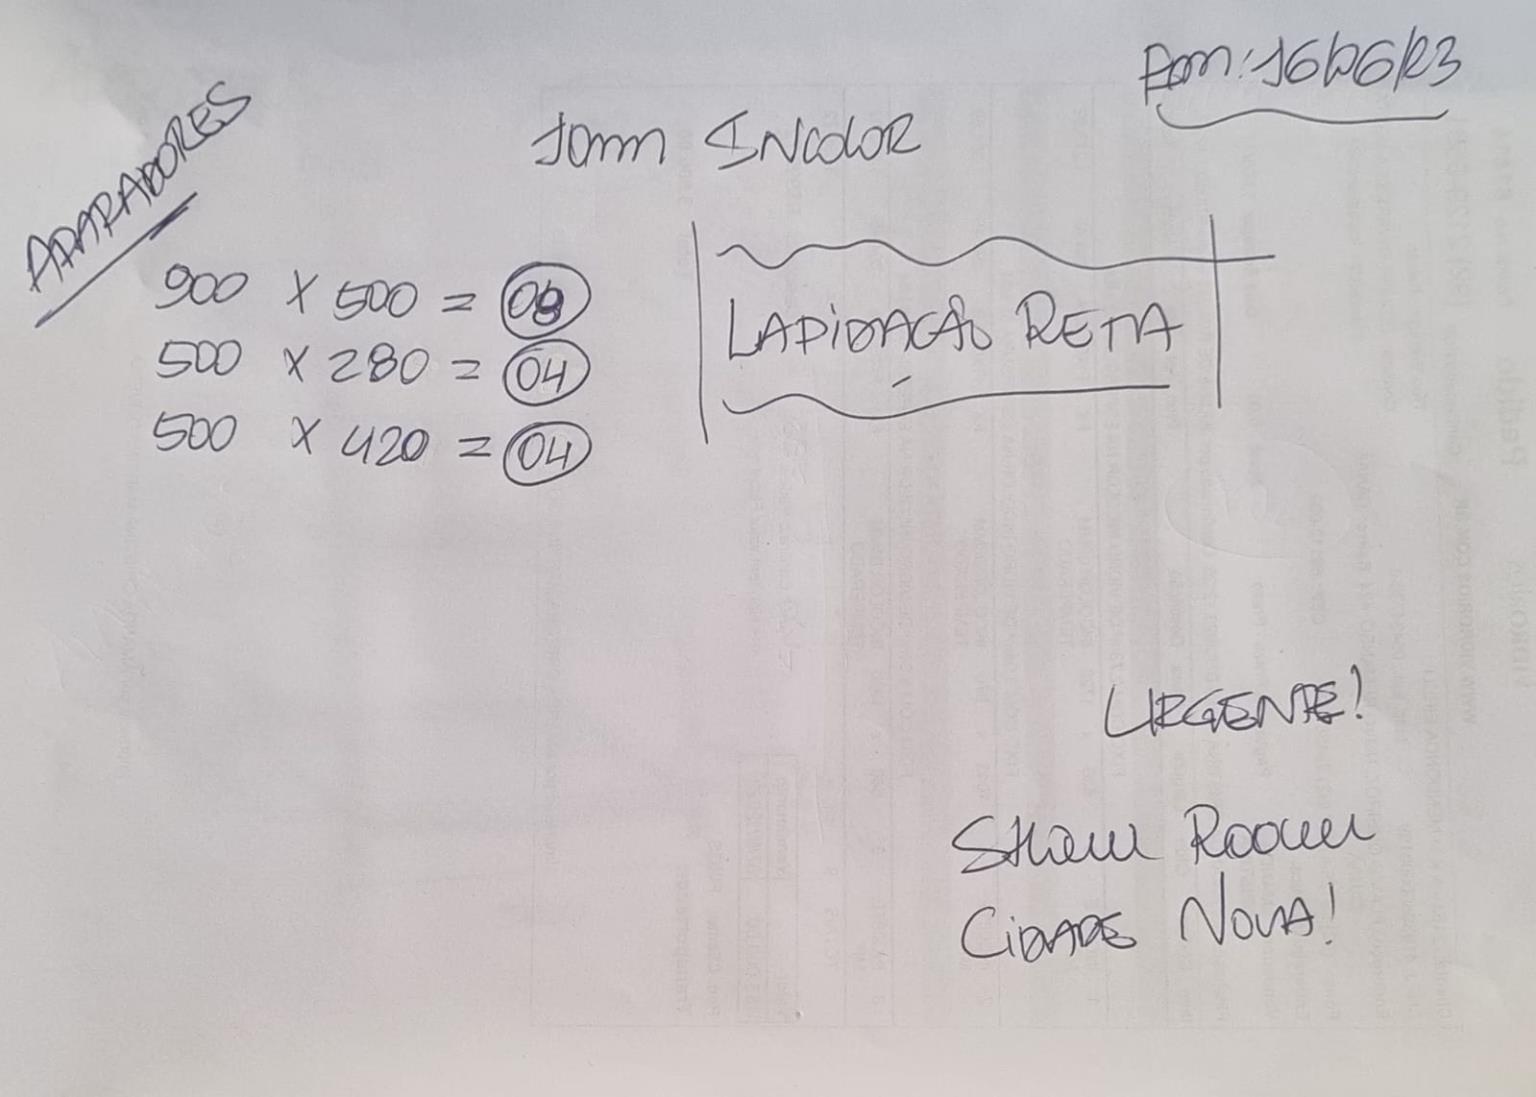 Em: 16/06/23
APARADORES
10mm INCOLOR
900 X 500 = 08
500 X 280 = 04
500 X 420 = 04
LAPIDAÇÃO RETA
URGENTE!
SHOW ROOM
CIDADE NOVA!